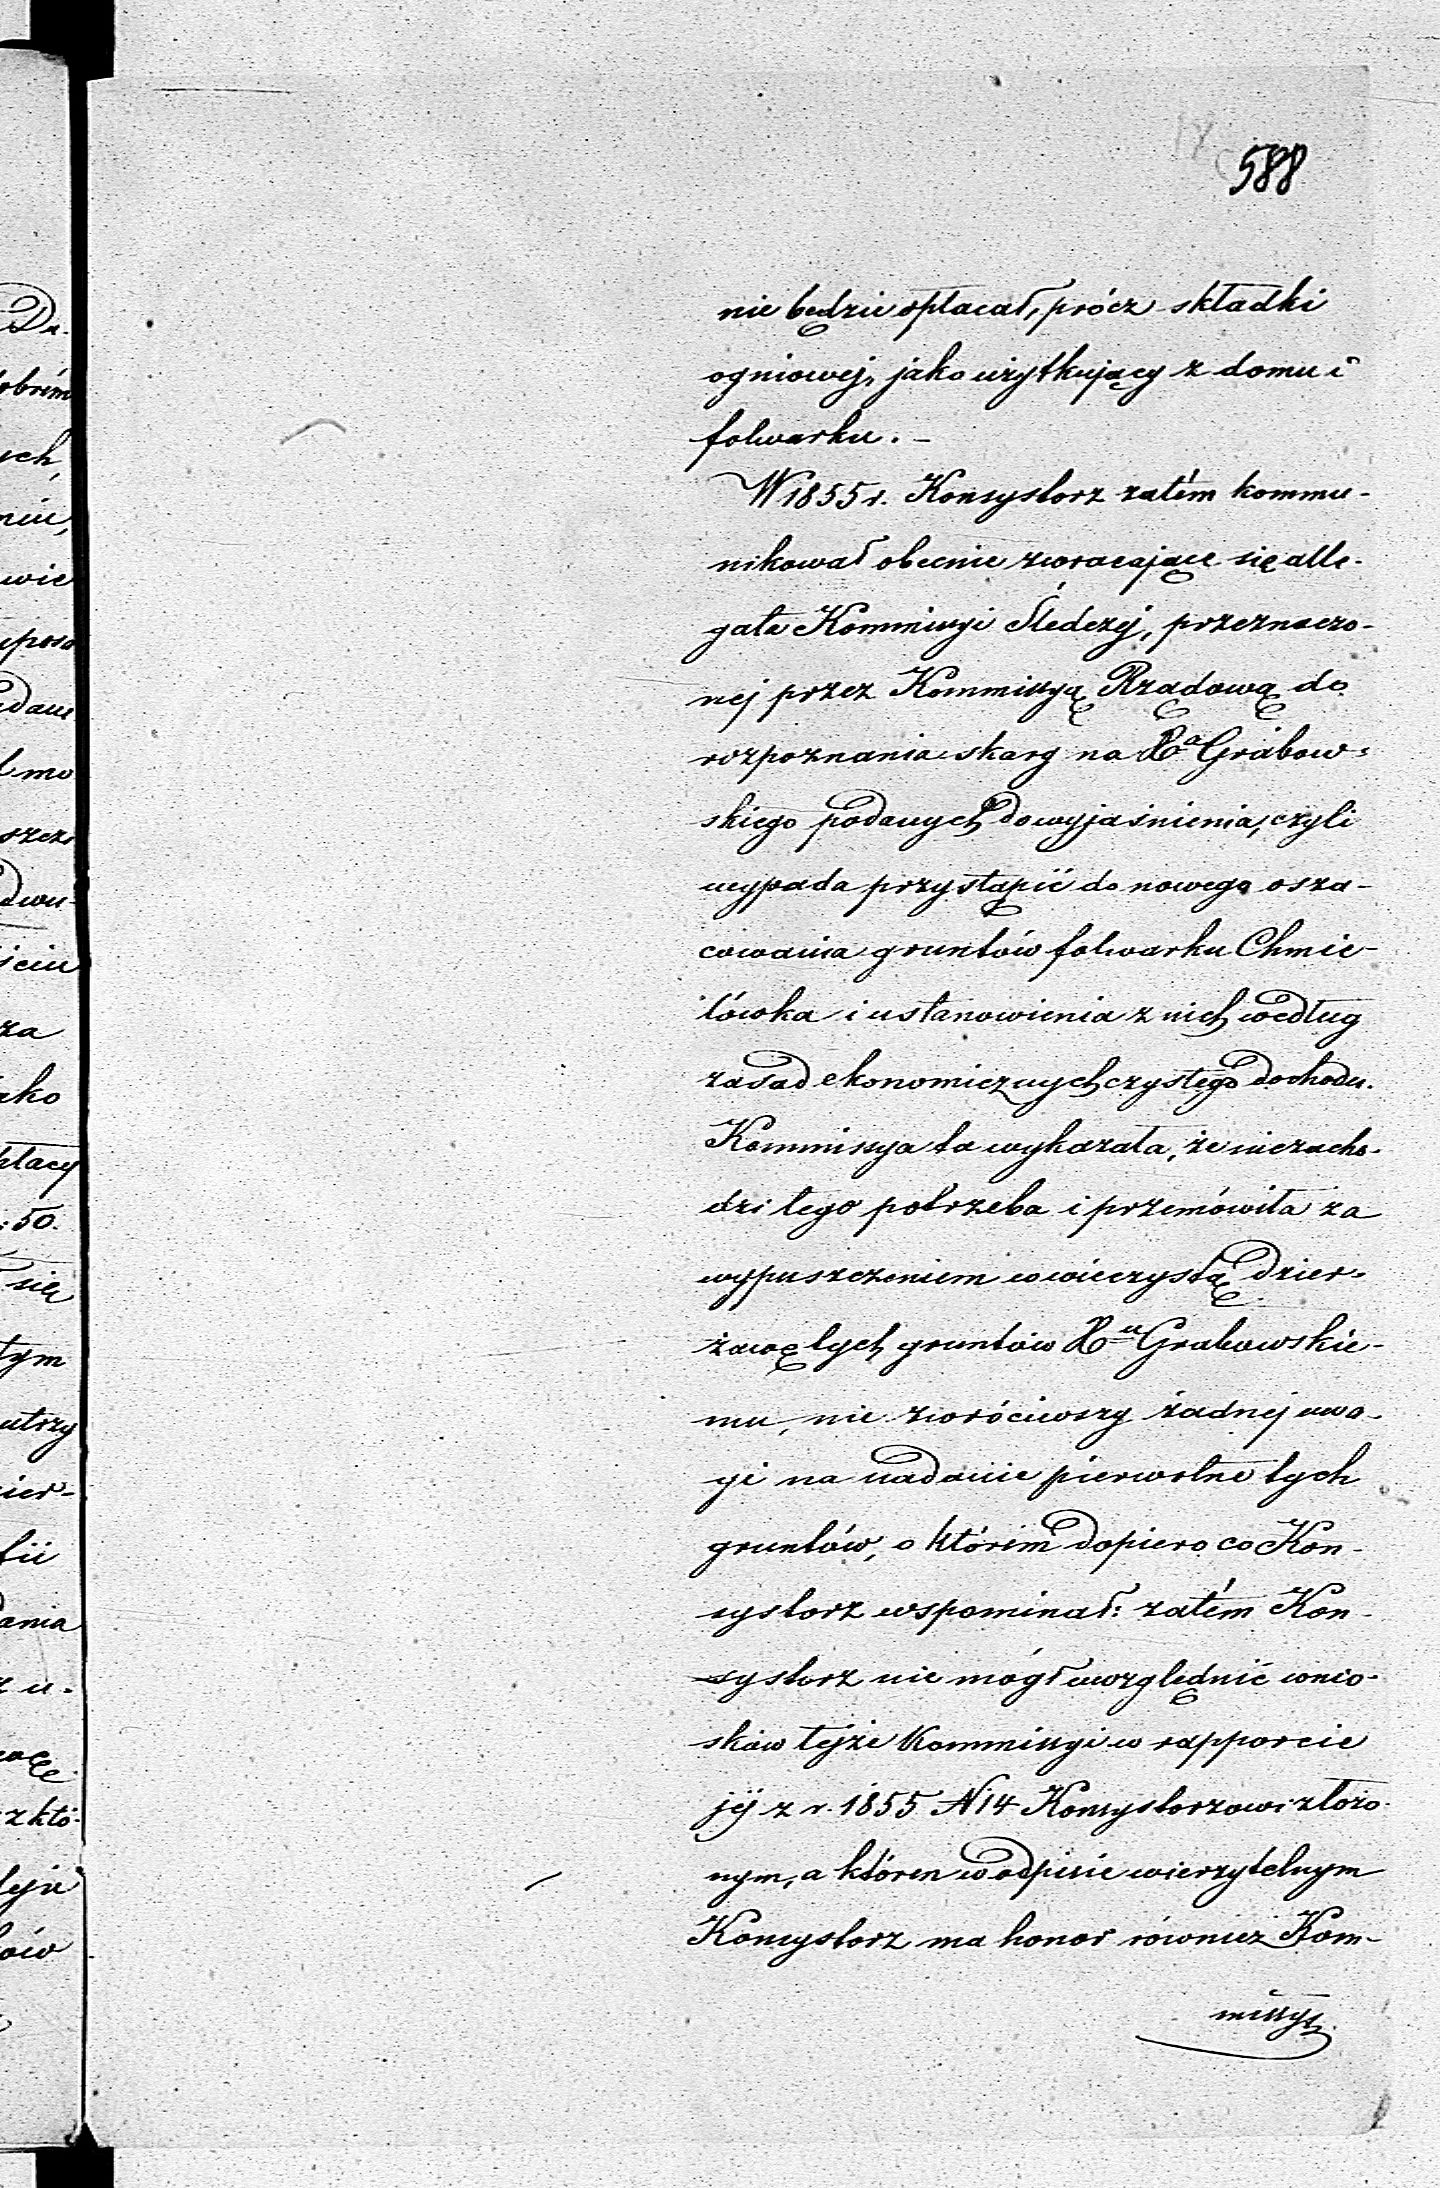 588
nie będzie opłacał, prócz składki
ogniowej, jako użytkujący z domu i
folwarku. –
W 1855 r. Konsystorz zatém kommu-
nikował obecnie zwracające się alle-
gata Kommissyi Śledczéj, przeznaczo-
nej przez Kommissyą Rządową do
rozpoznania skarg na Xa Grabow-
skiego podanych do wyjaśnienia, czyli
wypada przystąpić do nowego osza-
cowania gruntów folwarku Chmie-
lówka i ustanowienia z nich według
zasad ekonomicznych czystego dochodu.
Kommissya ta wykazała, że niezacho-
dzi tego potrzeba i przemówiła za
wypuszczeniem w wieczystą dzier-
żawę tych gruntów Xu Grabowskie-
mu, nie zwróciwszy żadnej uwa-
gi na nadanie pierwotne tych
gruntów, o którém dopiero co Kon-
systorz wspominał: zatém Kon-
systorz nie mógł uwzględnić wnio-
sków tejże Kommissyi w rapporcie
jéj z r. 1855 N 14 Konsystorzowi złożo-
nym, a któren w odpisie wierzytelnym
Konsystorz ma honor również Kom-
missyi